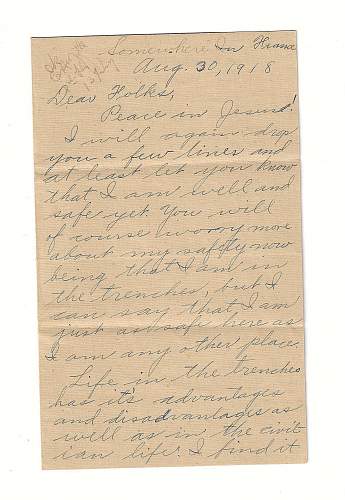 Somewhere In France
Aug. 30, 1918
Dear Folks,
Peace in Jesus!
I will again drop
you a few lines and
at least let you know
that I am well and
safe yet. You will
of course worry more
about my safety now
being that I am in
the trenches, but I
can say that I am
just as safe here as
I am any other place.
Life in the trenches
has it's advantages
and disadvantages as
well as in the civil
ian life. I find it